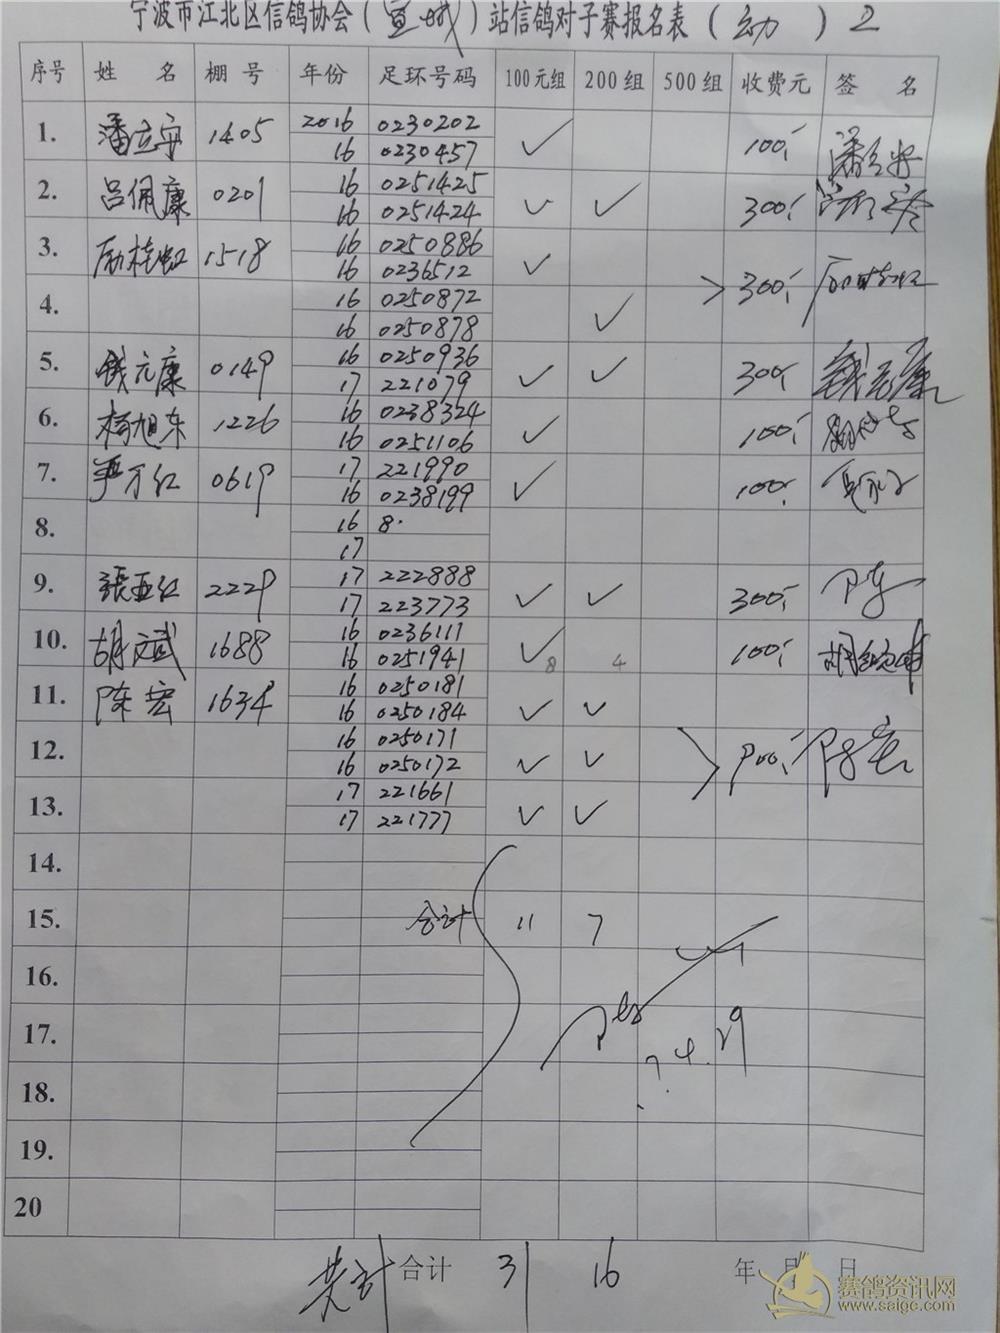 宁波市江北区信鸽协会（宣城）站信鸽对子赛报名表（幼）2
序号 姓 名 棚 号 年份 足环号码 100元组 200组 500组 收费元 签 名
1. 潘立安 1405 2016 0230202 ✓ 100,- 潘立安
16 0230457
2. 吕佩康 0201 16 0251425 ✓ ✓ 300,-
16 0251424
3. 励桂虹 1518 16 0250886 ✓ 300,-
16 0236512
4. 16 0250872 ✓
16 0250878
5. 钱元康 0149 16 0250936 ✓ ✓ 300,- 钱元康
17 221079
6. 杨旭东 1226 16 0238324 ✓ 100,-
16 0251106
7. 严万红 0619 17 221990 ✓ 100,-
16 0238199
8. 16 8.
17
9. 張亚红 2229 17 222888 ✓ ✓ 300,-
17 223773
10. 胡文斌 1688 16 0236111 ✓ 100,-
16 0251941 8 4
11. 陈宏 1634 16 0250181 ✓ ✓
16 0250184
12. 16 0250171 ✓ ✓ 900,- 陈宏
16 0250172
13. 17 221661 ✓ ✓
17 221777
14.
15. 合计 11 7
16.
17. 4.29
18.
19.
20
共计 合计 31 16 年 月 日
赛鸽资讯网
www.saigc.com